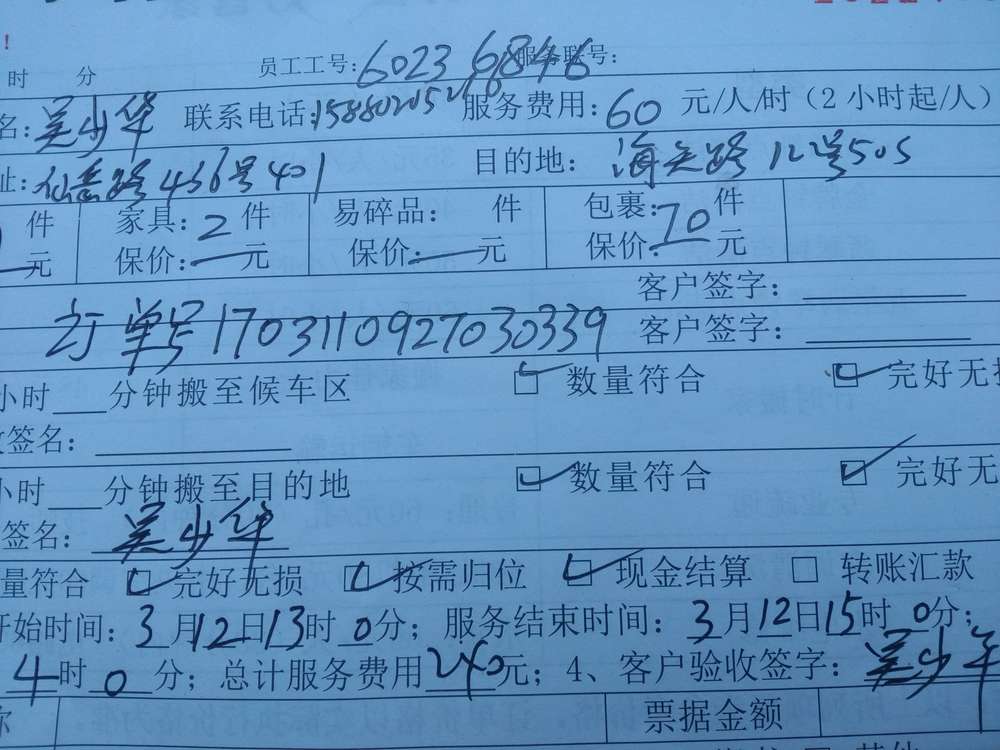 ！
时 分 员工工号:6023 6846 服务联号:
名:吴少华 联系电话: 服务费用:60 元/人/时（2 小时起/人）
址:仙岳路 456号401 目的地: 海天路 12号505
件 家具:2件 易碎品: 件 包裹:70件
元 保价:—元 保价:—元 保价: 元
客户签字:
订单号1703110927030339 客户签字:
小时 分钟搬至候车区 数量符合 完好无损
签名:
小时 分钟搬至目的地 数量符合 完好无
签名: 吴少华
量符合 完好无损 按需归位 现金结算 转账汇款
开始时间: 3月12日13时 0分; 服务结束时间: 3月12日15时 0分;
4时 0 分; 总计服务费用240元; 4、客户验收签字: 吴少华
称 票据金额
其他